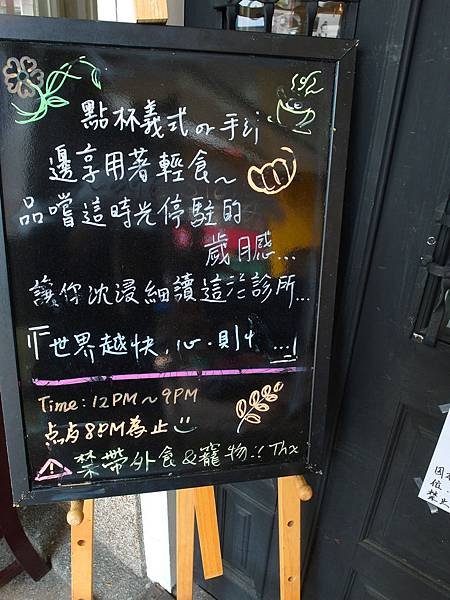 點杯義式 or 手沖
邊享用著輕食~
品嚐這時光停駐的
歲月感...
讓你沈浸細讀這診所...
『世界越快,心.則慢...』
Time: 12PM~9PM
点占8PM為止
禁帶外食&寵物!! Thx